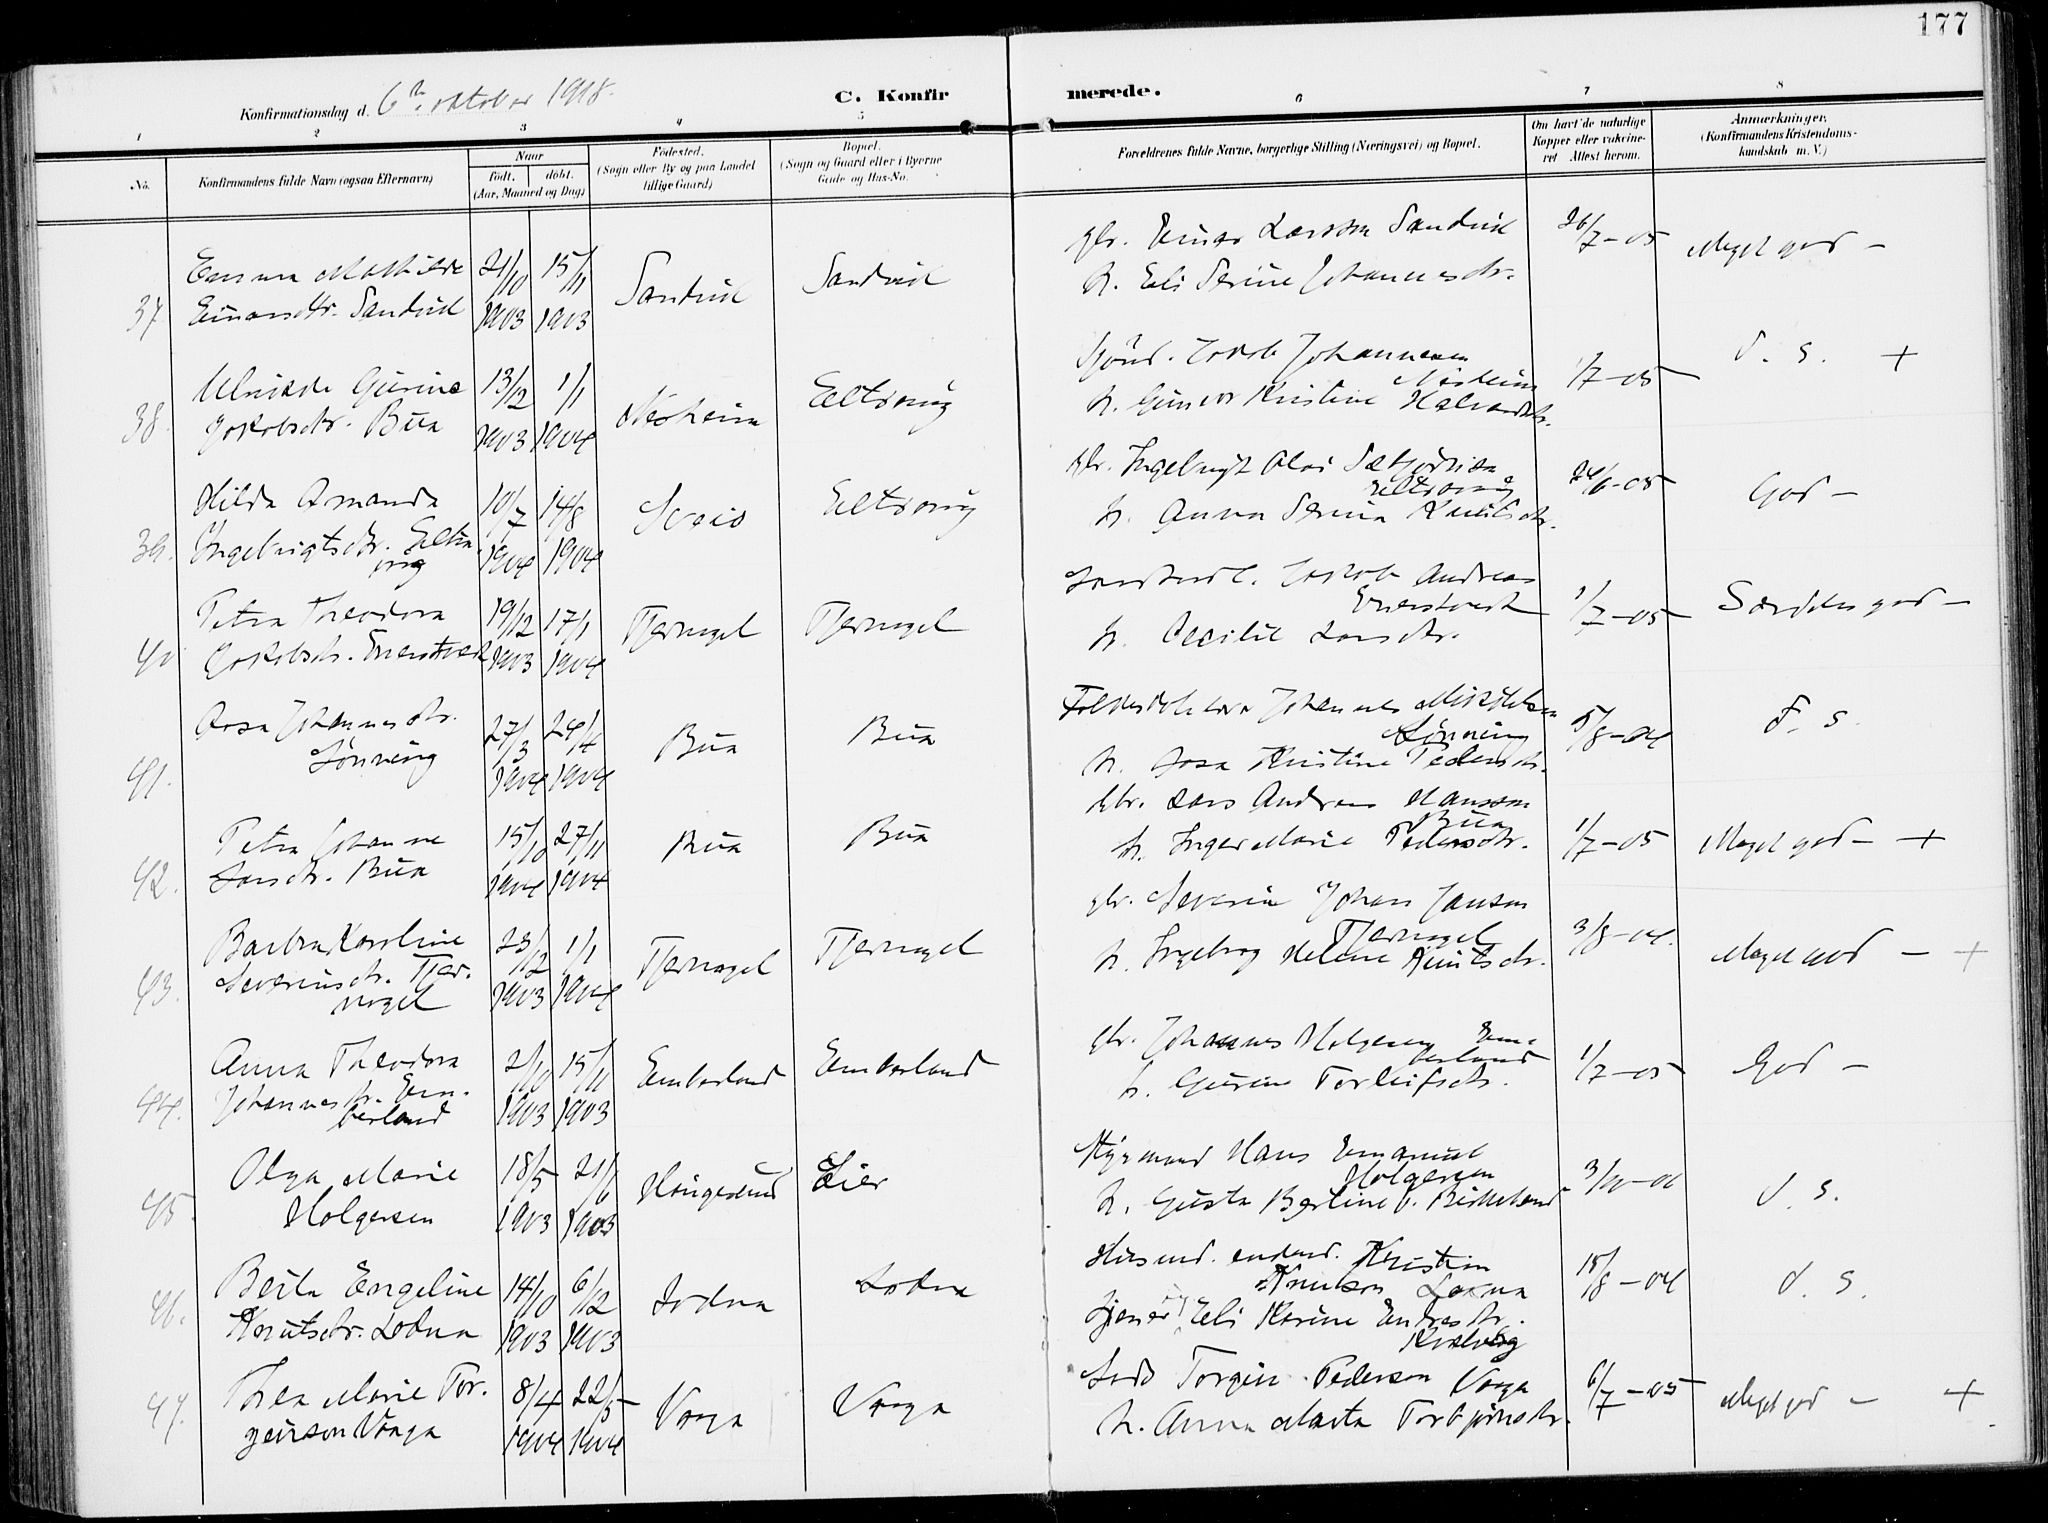 177
Konfirmationsdag d. 6te oktober 1918.
C. Konfirmerede.
1 2 3 4 5 6 7 8
No.
Konfirmandens fulde Navn (ogsaa Efternavn)
Naar
født. døbt.
(Aar, Maaned og Dag)
Fødested.
(Sogn eller By og paa Landet
tillige Gaard)
Bopæl.
(Sogn og Gaard eller i Byerne
Gade og Hus-No.
Forældrenes fulde Navne, borgerlige Stilling (Næringsvei) og Bopæl.
Om havt de naturlige
Kopper eller vakcine-
ret Attest herom.
Anmærkninger.
(Konfirmandens Kristendoms-
kundskab m. V.)
37. Emma Mathilde
Einarsdtr. Sandvik
21/10 1903
15/11 1903
Sandvik
Sandvik
gbr. Einar Larsson Sandvik
h. Eli Serine Johannesdtr.
26/7-05
Meget god -
38. Ulrikke Gurine
Jakobsdtr. Bua
13/12 1903
1/1 1904
Nesheim
Eltraag
Jakob Johannesen
Nesheim
h. Gunvor Kristine Halvardsdtr.
1/7-05
d. s. +
39. Hilda Amanda
Ingebrigtsdtr.
10/7 1904
14/8 1904
Sveio
Eltraag
gbr. Ingebrigt Olai
h. Anna Serina Knutsdtr.
24/6-05
God -
40. Petra Theodora
Jakobsdtr.
19/12 1903
17/1 1904
Tjernagel
Tjernagel
Jakob Andreas
h. Cecilie Larsdtr.
1/7-05
Særdeles god -
41. Johannesdtr.
Lønning
27/3 1904
24/4 1904
Bua
Bua
Johannes Mikkelsen
Lønning
h. Kristine Pedersdtr.
5/8-04
d. s.
42. Petra Johanne
Larsdtr. Bua
15/10 1904
27/11 1904
Bua
Bua
gbr. Lars Andreas Hansson
Bua
h. Inger Marie Pedersdtr.
1/7-05
Meget god - +
43. Barbra Karoline
Severinsdtr. Tjer-
nagel
23/12 1903
1/1 1904
Tjernagel
Tjernagel
gbr. Severin Johan Janson
Tjernagel
h. Ingeborg Helene Knutsdtr.
3/8-04.
Meget god - +
44. Anna Theodora
Johannesdtr. Em-
berland
2/10 1903
15/11 1903
Emberland
Emberland
gbr. Johannes Holgersen Em-
berland
h. Gurine Torleifsdtr.
1/7-05
God -
45. Olga Marie
Holgersen
18/5 1903
21/6 1903
Haugesund
Lier
Styrmand Hans Emanuel
Holgersen
h. Gusta Bertine f. Birkeland
d. s.
46. Berta Engeline
Knutsdtr. Lodna
14/10 1903
6/12 1903
Lodna
Lodna
Kristian
Knutson Lodna
Eli Karine Endresdtr.
15/8-04
d. s.
47. Thea Marie Tor-
geirson Vaaga
8/4 1904
22/5 1904
Vaaga
Vaaga
Torgeir Pederson Vaaga
h. Anna Marta Torbjørnsdtr.
6/7-05
Meget god - +